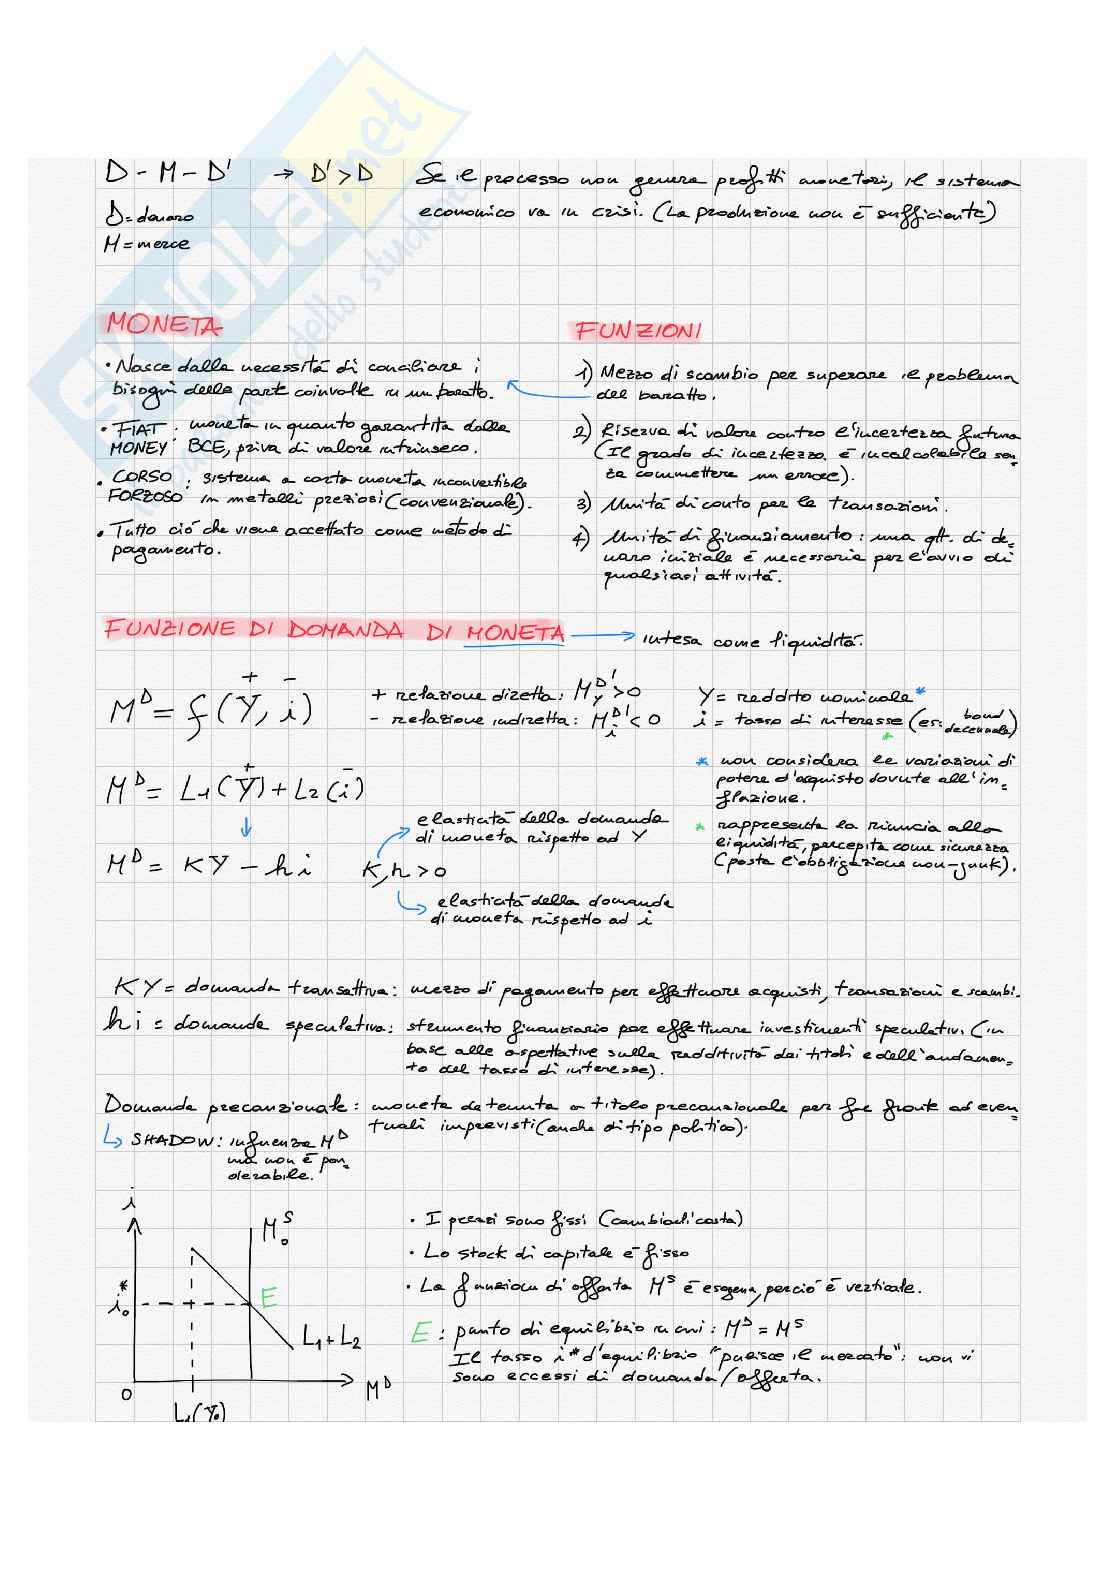 D - M - D' → D' > D
D = denaro
M = merce
Se il processo non genera profitti monetari, il sistema
economico va in crisi. (La produzione non è sufficiente)
MONETA
• Nasce dalla necessità di conciliare i
bisogni delle parti coinvolte in un baratto.
• FIAT MONEY: moneta in quanto garantita dalla
BCE, priva di valore intrinseco.
• CORSO FORZOSO: sistema a carta moneta inconvertibile
in metalli preziosi (convenzionale).
• Tutto ciò che viene accettato come metodo di
pagamento.
FUNZIONI
1) Mezzo di scambio per superare il problema
del baratto.
2) Riserva di valore contro l'incertezza futura
(Il grado di incertezza è incalcolabile sen-
za commettere un errore).
3) Unità di conto per le transazioni.
4) Unità di finanziamento: una qtt. di de-
naro iniziale è necessaria per l'avvio di
qualsiasi attività.
FUNZIONE DI DOMANDA DI MONETA → intesa come liquidità.
+ −
Mᴰ = f (Y, i)
+ relazione diretta: Mᴰ'y > 0
− relazione indiretta: Mᴰ'i < 0
Y = reddito nominale *
i = tasso di interesse (es: bond decennale)
*
* non considera le variazioni di
potere d'acquisto dovute all'in-
flazione.
* rappresenta la rinuncia alla
liquidità, percepita come sicurezza
(posta l'obbligazione non-junk).
+ −
Mᴰ = L₁(Y) + L₂(i)
↓
Mᴰ = KY − hi
K, h > 0
elasticità della domanda
di moneta rispetto ad Y
elasticità della domanda
di moneta rispetto ad i
KY = domanda transattiva: mezzo di pagamento per effettuare acquisti, transazioni e scambi.
hi = domanda speculativa: strumento finanziario per effettuare investimenti speculativi (in
base alle aspettative sulla redditività dei titoli e dell'andamen-
to del tasso di interesse).
Domanda precauzionale: moneta detenuta a titolo precauzionale per far fronte ad even-
tuali imprevisti (anche di tipo politico).
SHADOW: influenza Mᴰ
ma non è pon-
derabile.
i
M₀ˢ
i₀*
E
L₁ + L₂
0
Mᴰ
L₁(Y₀)
• I prezzi sono fissi (cambiali'costa)
• Lo stock di capitale è fisso
• La funzione di offerta Mˢ è esogena, perciò è verticale.
E: punto di equilibrio in cui: Mᴰ = Mˢ
Il tasso i* d'equilibrio "pulisce il mercato": non vi
sono eccessi di domanda/offerta.
SKUOLA.net